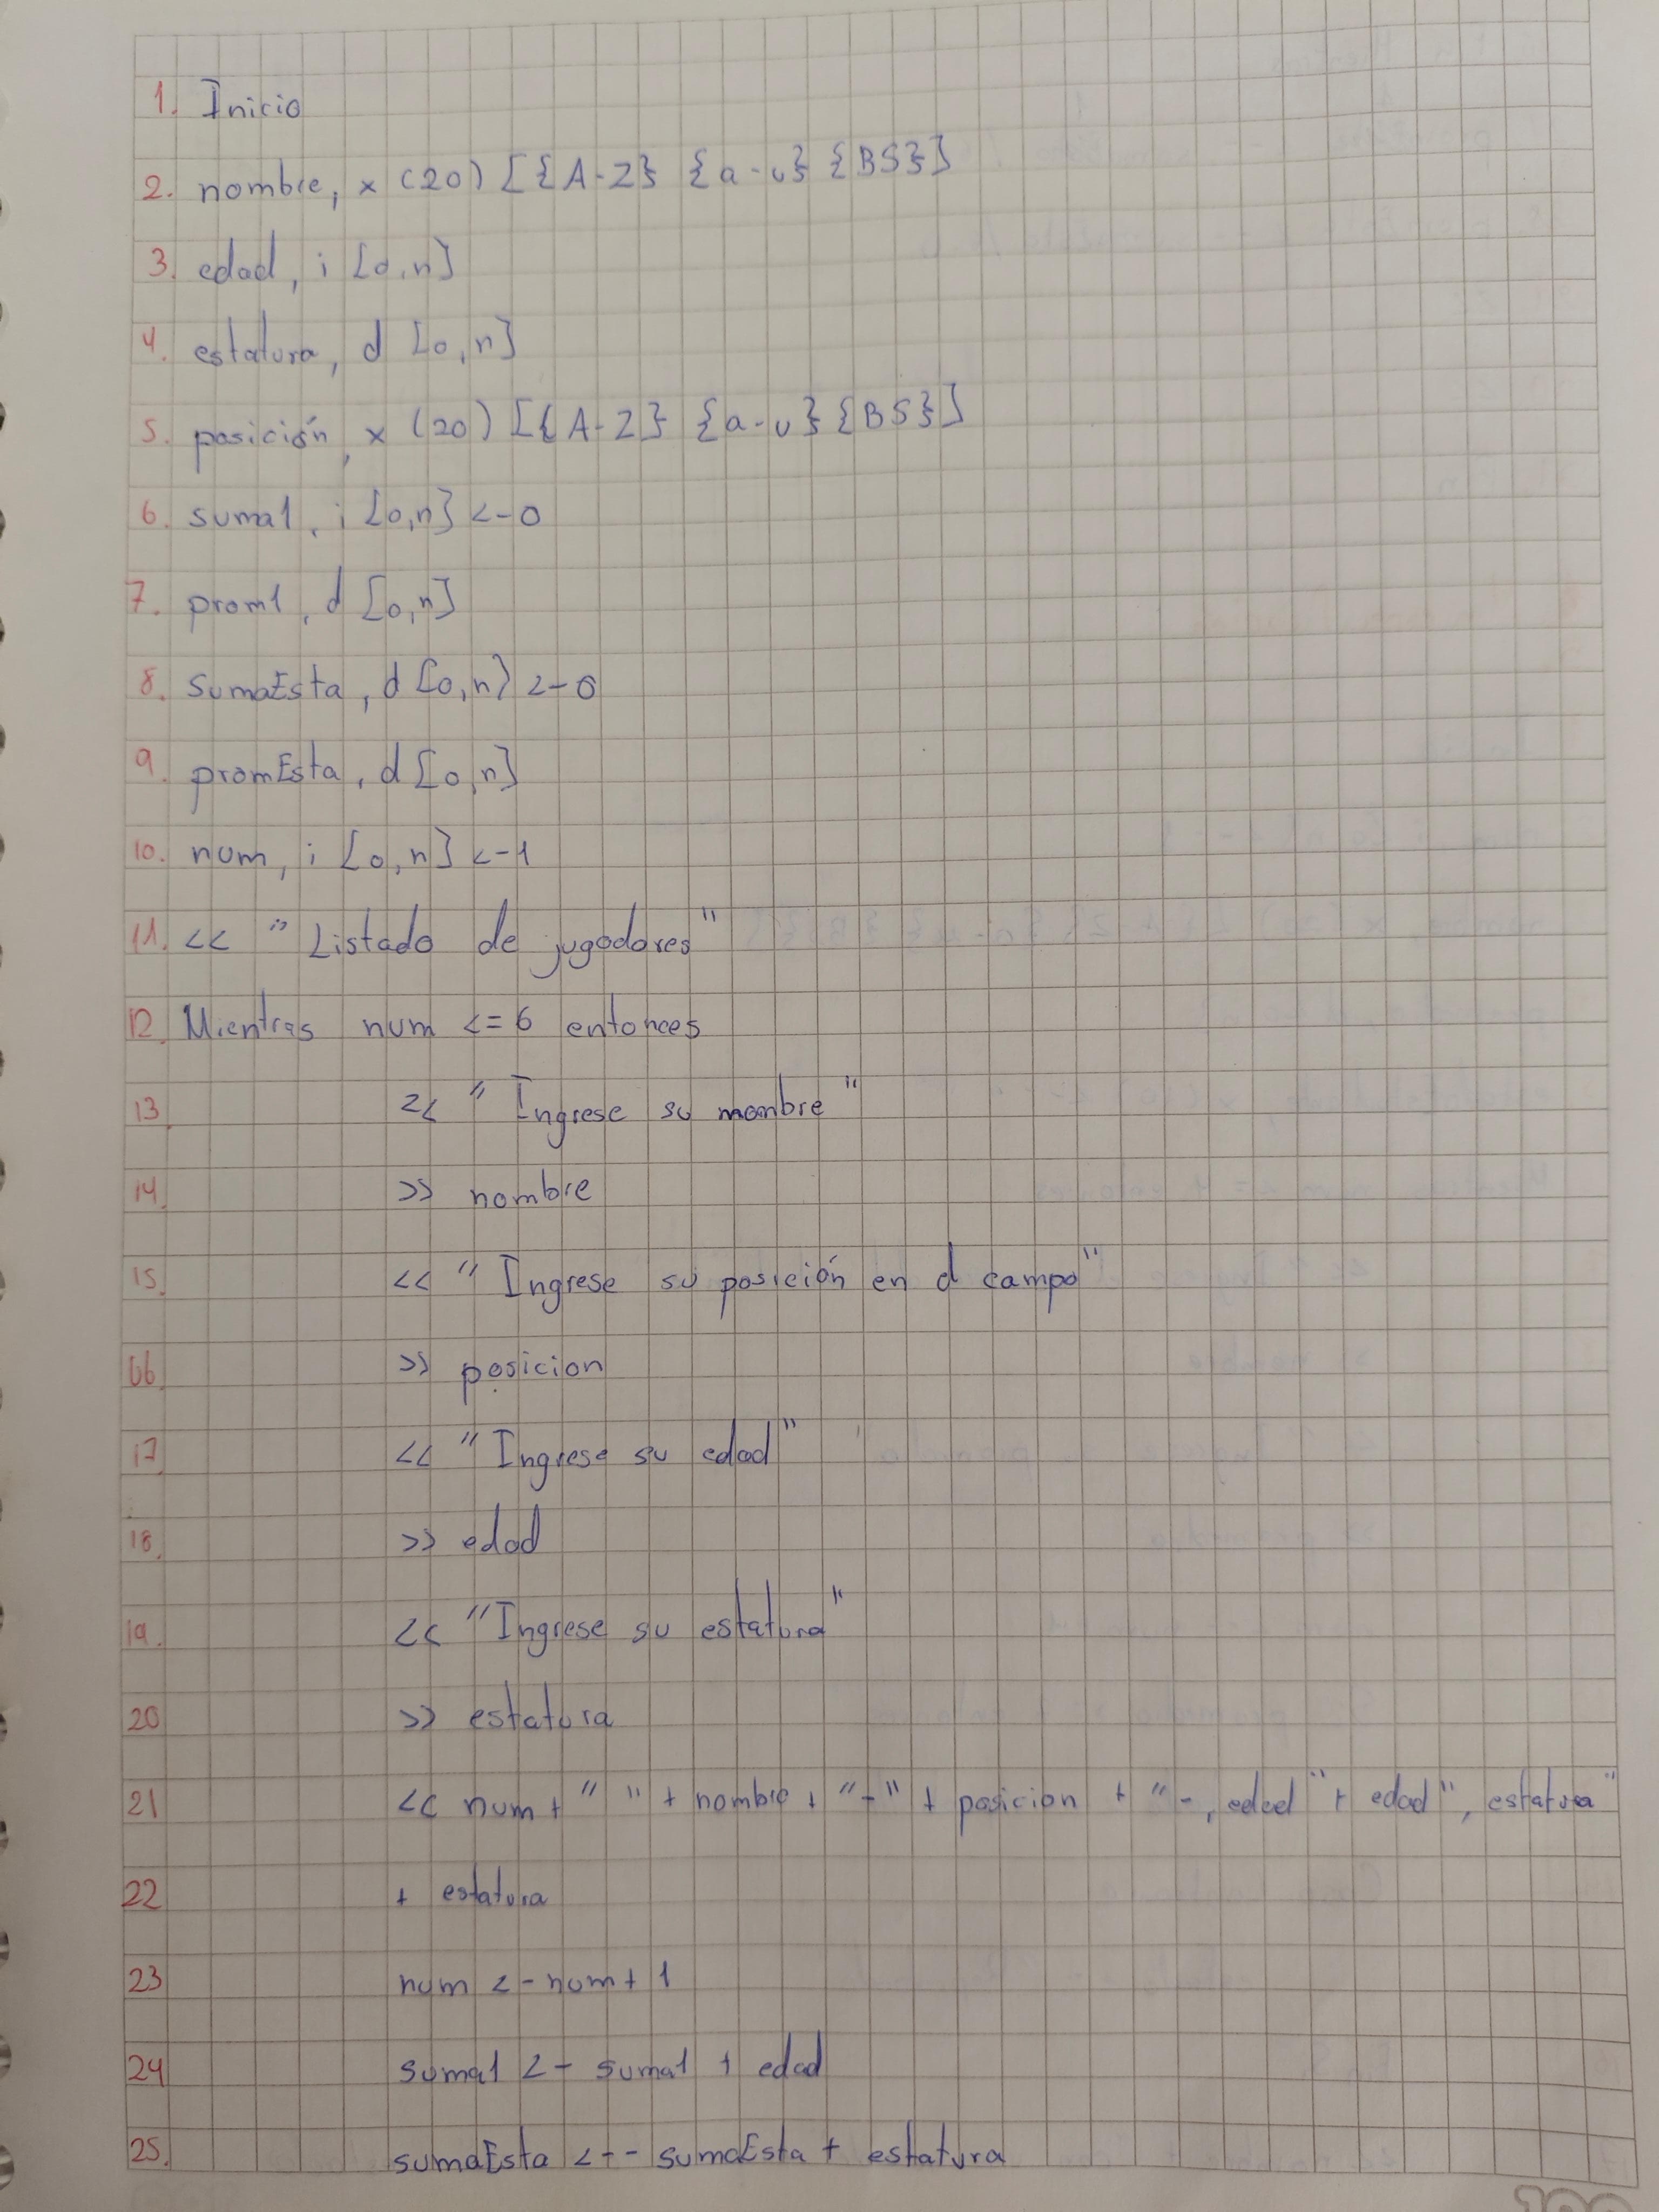 1. Inicio
2. nombre, x (20) [{A-Z} {a-u} {BS}]
3. edad, i [0,n]
4. estatura, d [0,n]
5. posición, x (20) [{A-Z} {a-u} {BS}]
6. suma1, i [0,n] <-0
7. prom1, d [0,n]
8. SumaEsta, d [0,n] <-0
9. promEsta, d [0,n]
10. num, i [0,n] <-1
11. << "Listado de jugadores"
12 Mientras num <=6 entonces
13 << "Ingrese su mombre"
14. >> nombre
15. << "Ingrese su posición en el campo"
16 >> posicion
17 << "Ingrese su edad"
18. >> edad
19. << "Ingrese su estatura"
20 >> estatura
21 << num + " " + nombre + "-" + posicion + "-, edad" + edad", estatura"
22 + estatura
23 num <- num + 1
24 suma1 <- suma1 + edad
25. sumaEsta <-- sumaEsta + estatura